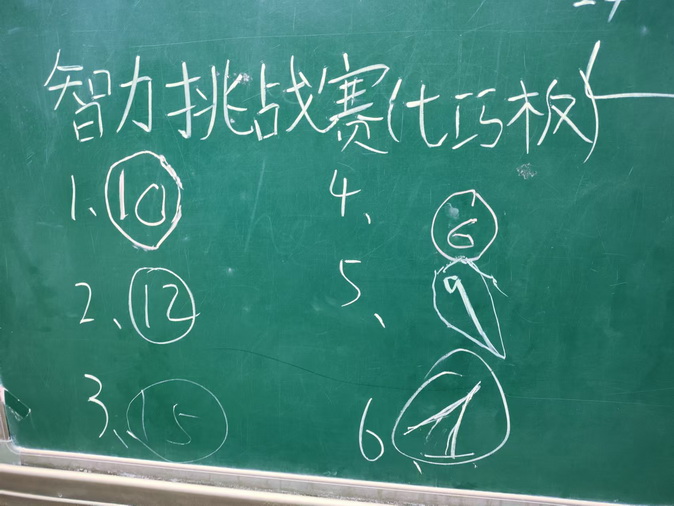 智力挑战赛(七巧板)
1、10 4、
6
2、12 5、9
3、15 6、1